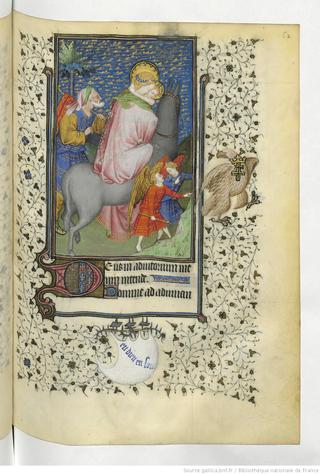 DEus in adiutorium me
um intende.
Domine ad adiuuan
Source gallica.bnf.fr / Bibliothèque nationale de France